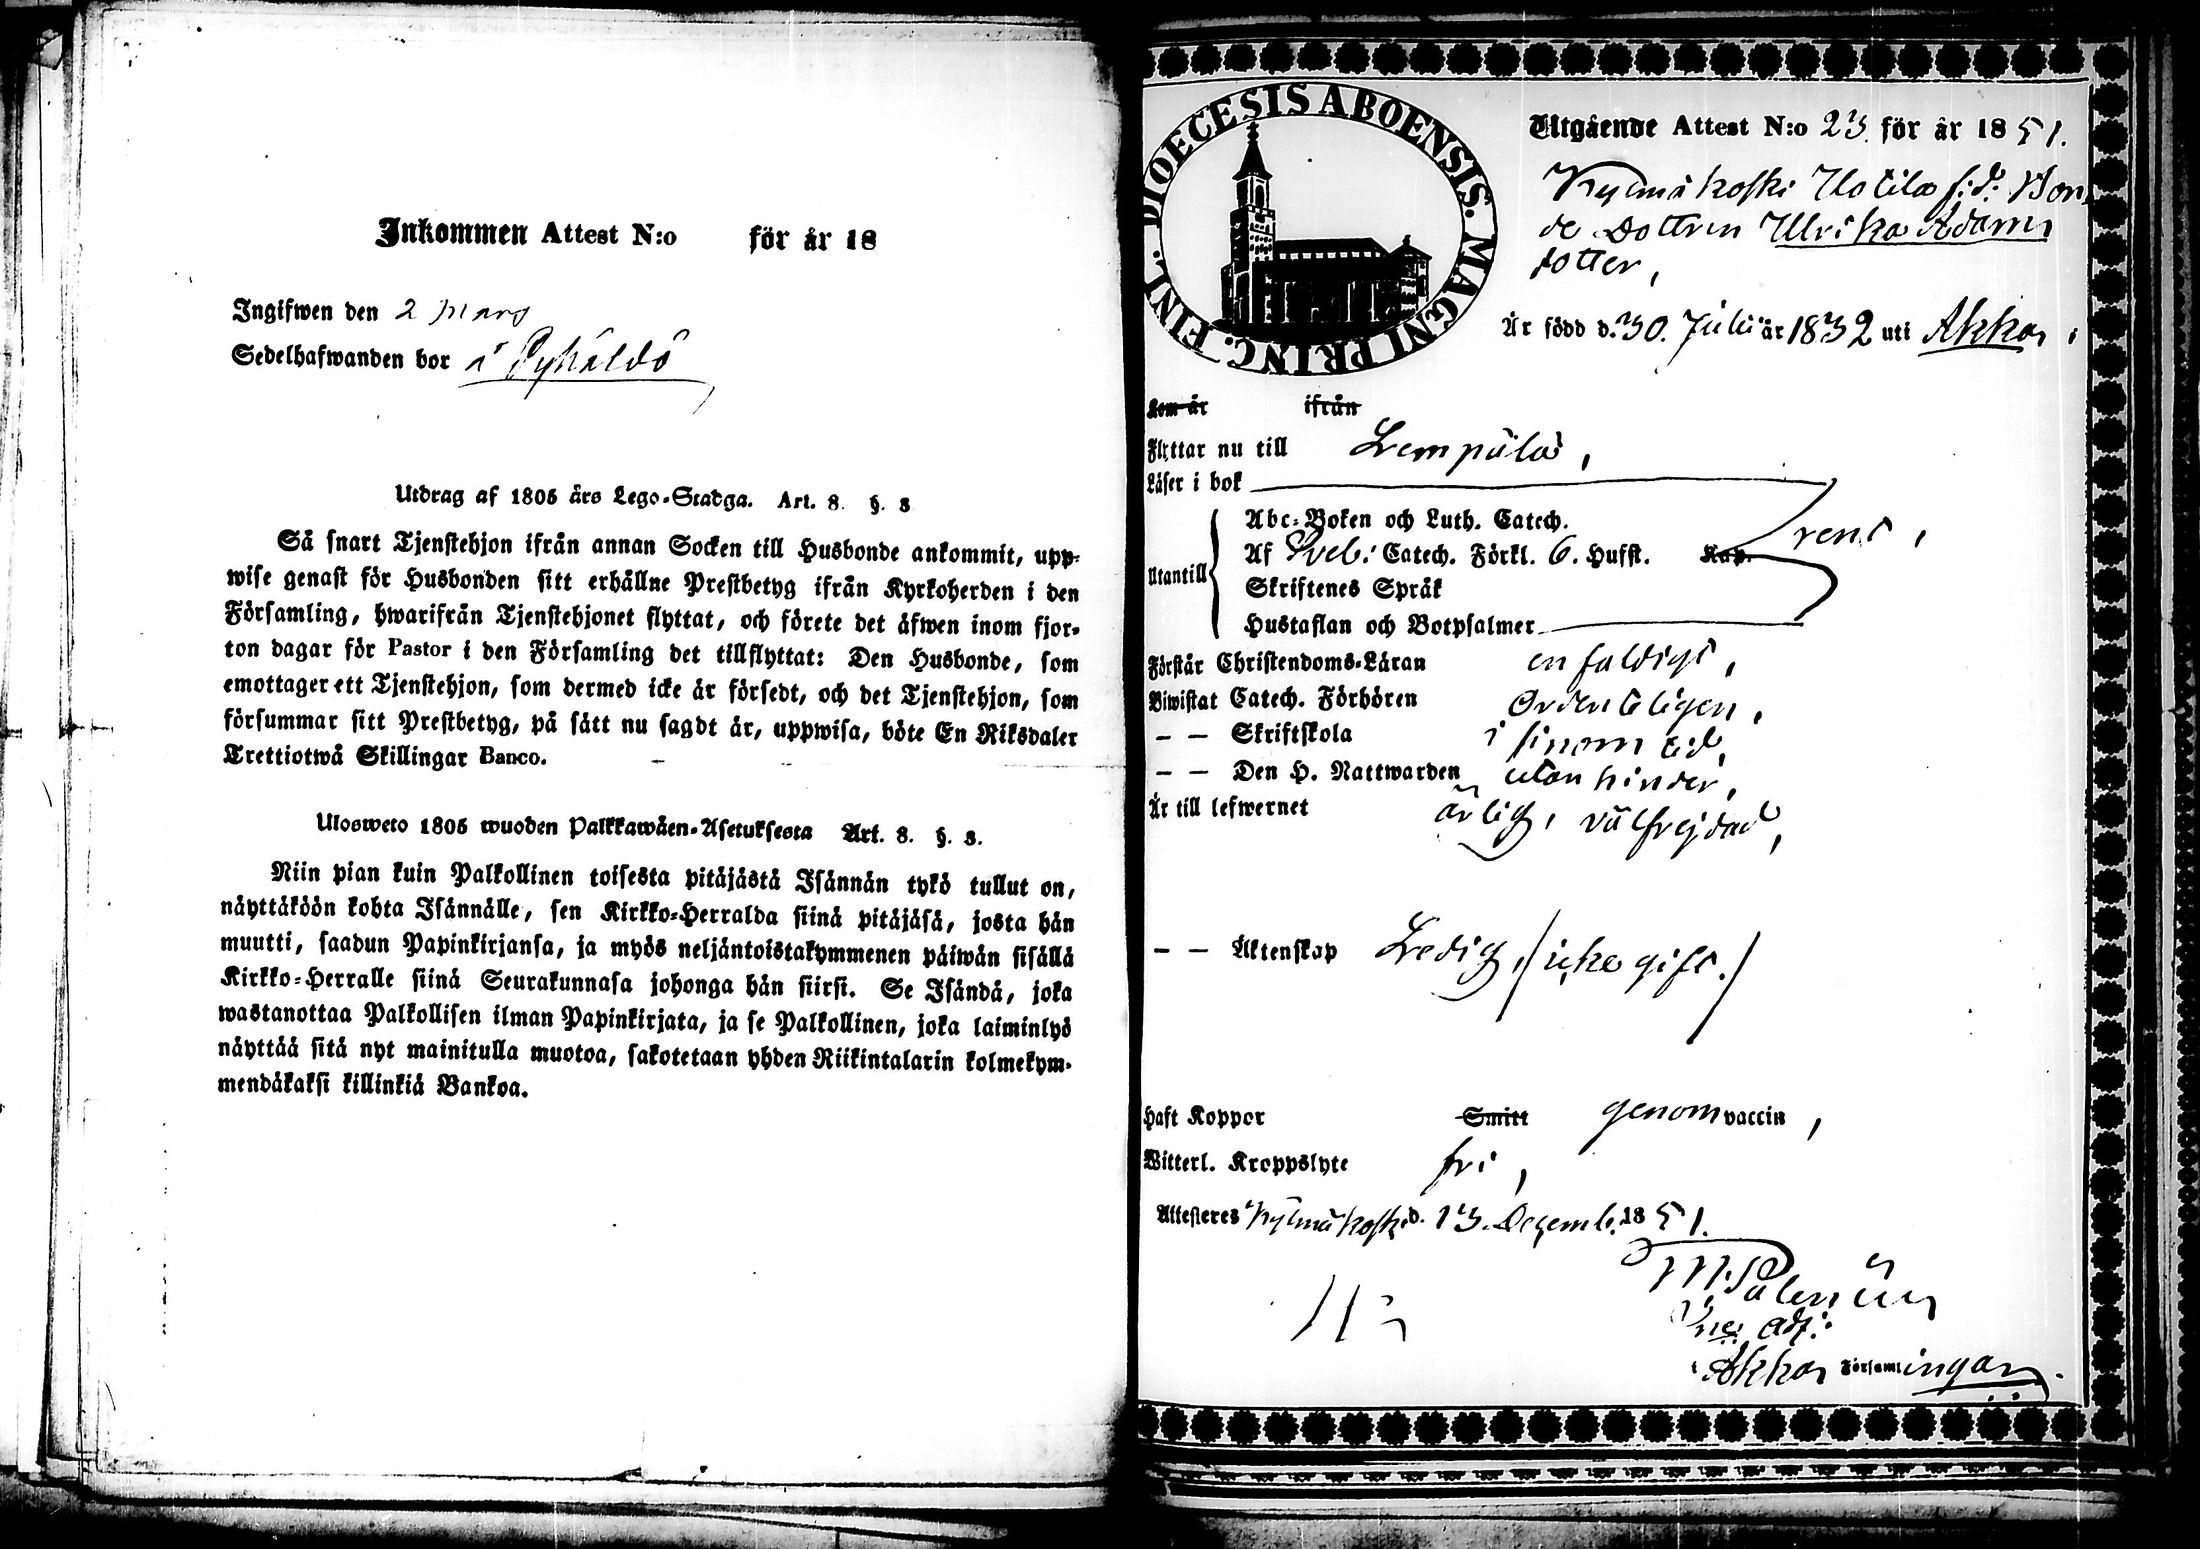 Inkommen Attest N:o för år 18
Ingifwen den 2 Mars
Sedelhafwanden bor å Pyhäldö
Utdrag af 1805 års Lego-Stadga. Art. 8. §. 3
Så snart Tjenstehjon ifrån annan Socken till Husbonde ankommit, upp-
wise genast för Husbonden sitt erhållne Prestbetyg ifrån Kyrkoherden i den
Församling, hwarifrån Tjenstehjonet flyttat, och förete det äfwen inom fjor-
ton dagar för Pastor i den Församling det tillflyttat: Den Husbonde, som
emottager ett Tjenstehjon, som dermed icke är försedt, och det Tjenstehjon, som
försummar sitt Prestbetyg, på sätt nu sagdt är, uppwisa, böte En Riksdaler
Trettiotwå Skillingar Banco.
Ulosweto 1805 wuoden Palkkawäen-Asetuksesta Art. 8. §. 3.
Niin pian kuin Palkollinen toisesta pitäjästä Isännän tykö tullut on,
näyttäköön kohta Isännälle, sen Kirkko-Herralda siinä pitäjäsä, josta hän
muutti, saadun Papinkirjansa, ja myös neljäntoistakymmenen päiwän sisällä
Kirkko-Herralle siinä Seurakunnasa johonga hän siirsi. Se Isändä, joka
wastanottaa Palkollisen ilman Papinkirjata, ja se Palkollinen, joka laiminlyö
näyttää sitä nyt mainitulla muotoa, sakotetaan yhden Riikintalarin kolmekym-
mendäkaksi killinkiä Bankoa.
FINL. DIOECESIS ABOENSIS. MAGNI PRINC.
Utgående Attest N:o 23. för år 1851.
Kylmäkoski Uotila f.d. Bon
de Dottren Ulrika Adams
dotter,
Är född d. 30. Julii år 1832 uti Akkas
Kom år ifrån
Flyttar nu till Lempälä,
Läser i bok
Abc-Boken och Luth. Catech.
rent,
Utantill Af Sveb: Catech. Förkl. 6. Hufst. Kap.
Skriftenes Språk
Hustaflan och Botpsalmer
Förstår Christendoms-Läran enfaldigt,
Biwistat Catech. Förhören Ordenteligen,
— — Skriftskola i sinom tid,
— — Den H. Nattwarden utan hinder,
Är till lefwernet ärlig, välfrejdad,
— — Äktenskap Ledig, /icke gift./
Haft Koppor Smitt genom vaccin,
Witterl. Kroppslyte fri,
Attesteres Kylmäkoski d. 13. Decemb. 1851.
Vice adj:
i Akkas Församlingar.